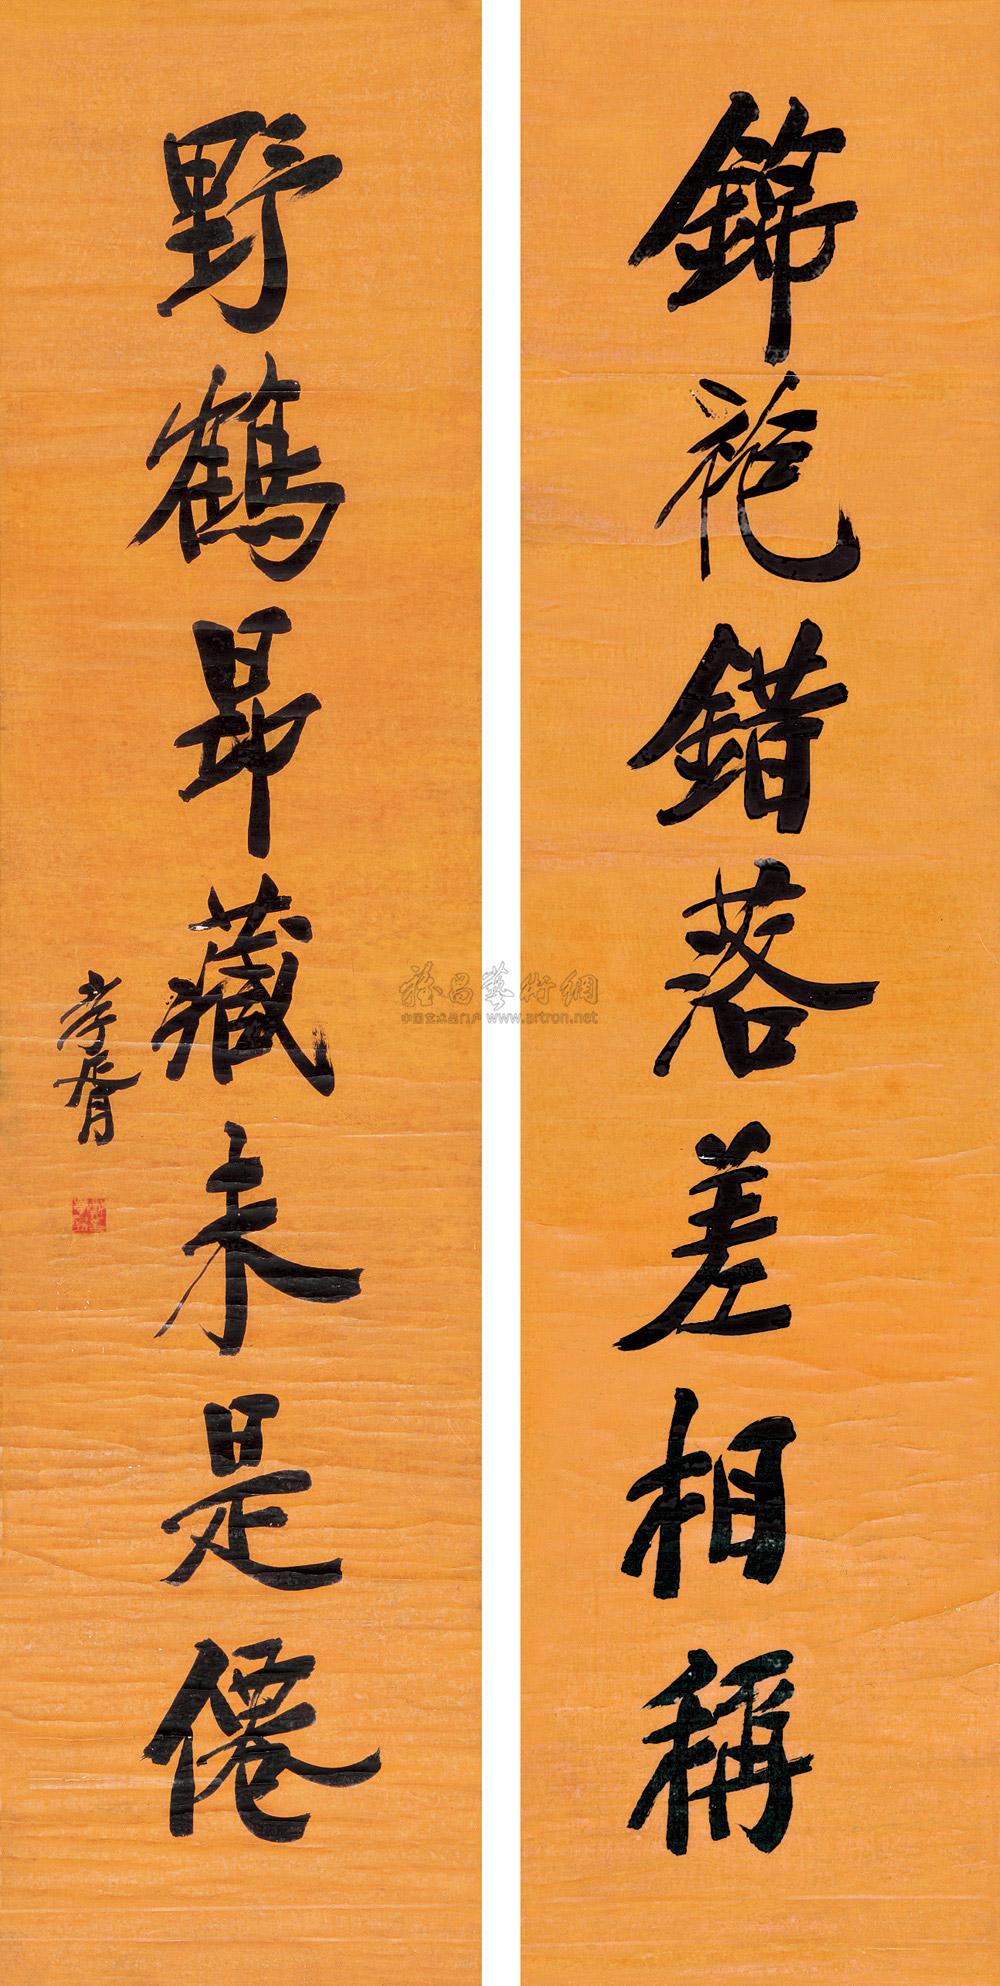 錦袍錯落差相稱
野鶴昂藏未是僊
孝胥
雅昌藝術網
中国艺术品门户 www.artron.net